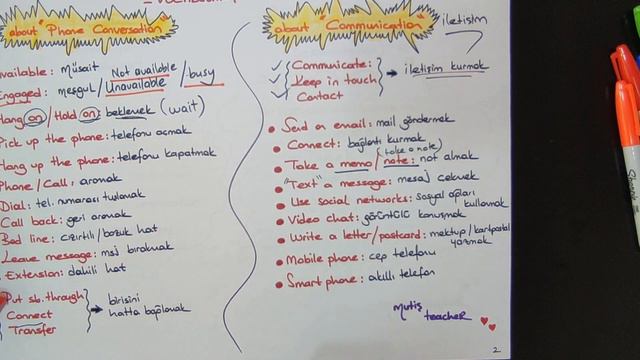 about "Phone Conversation"
Available: Müsait Not available
Engaged: meşgul / Unavailable / busy
Hang on / Hold on: beklemek (wait)
Pick up the phone: telefonu açmak
Hang up the phone: telefonu kapatmak
Phone / Call: aramak
Dial: tel. numarası tuşlamak
Call back: geri aramak
Bad line: cızırtılı / bozuk hat
Leave message: msj bırakmak
Extension: dahili hat
Put sb. through
Connect
Transfer
birisini
hatta bağlamak
about "Communication"
iletişim
Communicate:
Keep in touch
Contact
iletişim kurmak
Send an email: mail göndermek
Connect: bağlantı kurmak
(take a note)
Take a memo / note: not almak
"Text" a message: mesaj çekmek
Use social networks: sosyal ağları
kullanmak
Video chat: görüntülü konuşmak
Write a letter / postcard: mektup / kartpostal
yazmak
Mobile phone: cep telefonu
Smart phone: akıllı telefon
mutiş
teacher
2